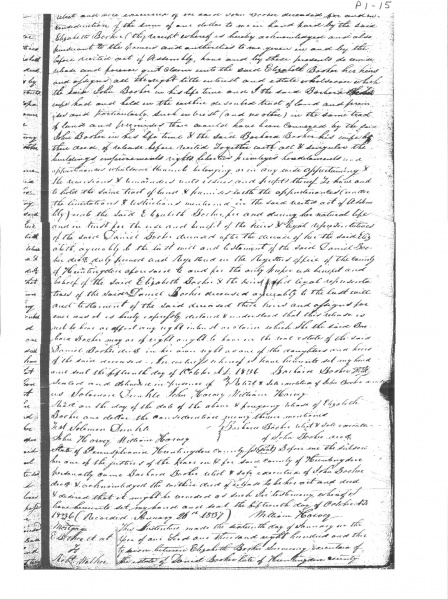 P1-15
relict and sole executrix of said John Booher deceased for and in
consideration of the sum of one dollar to me in hand paid by the said
Elizabeth Booher the receipt whereof is hereby acknowledged and also
pursuant to the powers and authorities to me given in and by the
before recited act of Assembly, have and by these presents do remise
release and forever quit claim unto the said Elizabeth Booher her heirs
and assigns, all the right interest and estate whatsoever which
the said John Booher in his life time and I the said Barbara
wife had and held in the entire described tract of land and premi
ses and particularly such interest (and no other) in the same tract
of land and premises that would have been conveyed by the said
John Booher in his life time & the said Barbara Booher his wife by
their deed of release before recited Together with all & singular the
buildings improvements rights liberties privileges hereditaments and
appurtenances whatsoever thereunto belonging or in any wise appertaining &
the reversions & remainders rents issues and profits thereof To have and
to hold the same tract of land & premises with the appurtenances (under
the limitations & restrictions mentioned in the said recited act of Assem
bly) unto the said Elizabeth Booher for and during her natural life
and in trust for the use and benefit of the heirs & legal representatives
of the said Daniel Booher deceased after the decease of her the said Eliz
abeth agreeably to the last will and testament of the said Daniel Boo
her dec'd duly proved and Registered in the Registers office of the county
of Huntingdon aforesaid to and for the only proper use benefit and
behoof of the said Elizabeth Booher & the heirs and legal representa
tives of the said Daniel Booher deceased agreeably to the last will
and testament of the said deceased their heirs and assigns for
ever and it is hereby expressly declared & understood that this release is
not to bar or affect any right interest or claim which she the said Bar
bara Booher may or of right ought to have in the real estate of the said
Daniel Booher dec'd in her own right as one of the daughters and heirs
of the said deceased. In witness whereof I have hereunto set my hand
and seal the fifteenth day of October A.D. 1836 Barbara Booher
Sealed and delivered in presence of Relict & sole executrix of John Booher
us Solomon John Harvey William Harvey
Rec'd on the day of the date of the above & foregoing release of Elizabeth
Booher one dollar the consideration money therein mentioned
Test Solomon Barbara Booher relict & sole executrix
John Harvey William Harvey of John Booher dec'd
State of Pennsylvania Huntingdon County Before me the subscri
ber one of the justices of the Peace in & for said county of Huntingdon
personally came Barbara Booher relict & sole executrix of John Booher
dec'd & acknowledged the within deed of release to be her act and deed
& desired that it might be recorded as such In testimony whereof I
have hereunto set my hand and seal the fifteenth day of October A.D.
1836 (Recorded January 1837) William Harvey
Mortgage This Indenture made the sixteenth day of January in the
E. Booher et al year of our Lord one thousand eight hundred and thir
to between Elizabeth Booher surviving executrix of
Robt. Walker the estate of Daniel Booher late of Huntingdon county